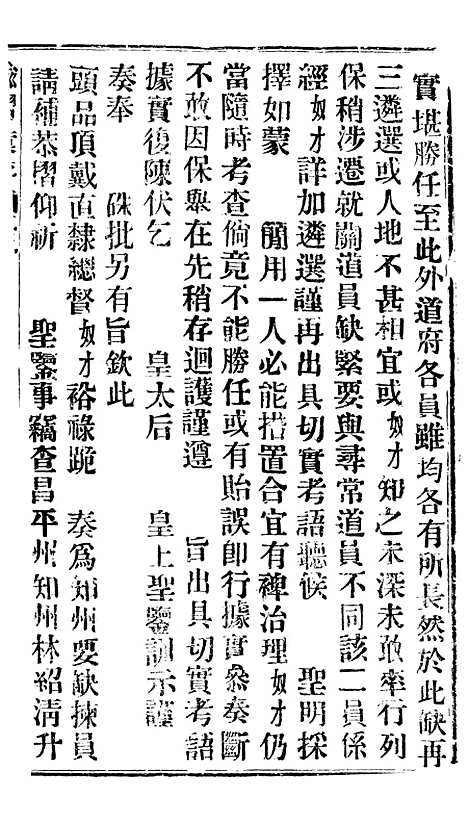 實堪勝任至此外道府各員雖均各有所長然於此缺再
三遴選或人地不甚相宜或奴才知之未深未敢率行列
保稍涉遷就關道員缺緊要與尋常道員不同該二員係
經奴才詳加遴選謹再出具切實考語聽候　聖明採
擇如蒙　簡用一人必能措置合宜有裨治理奴才仍
當隨時考查倘竟不能勝任或有貽誤卽行據實叅奏斷
不敢因保舉在先稍存迴護謹遵　旨出具切實考語
據實復陳伏乞　皇太后　皇上聖鑒訓示謹
奏奉　硃批另有旨欽此
頭品頂戴直隸總督奴才裕祿跪　奏爲知州要缺揀員
請補恭摺仰祈　聖鑒事竊查昌平州知州林紹淸升